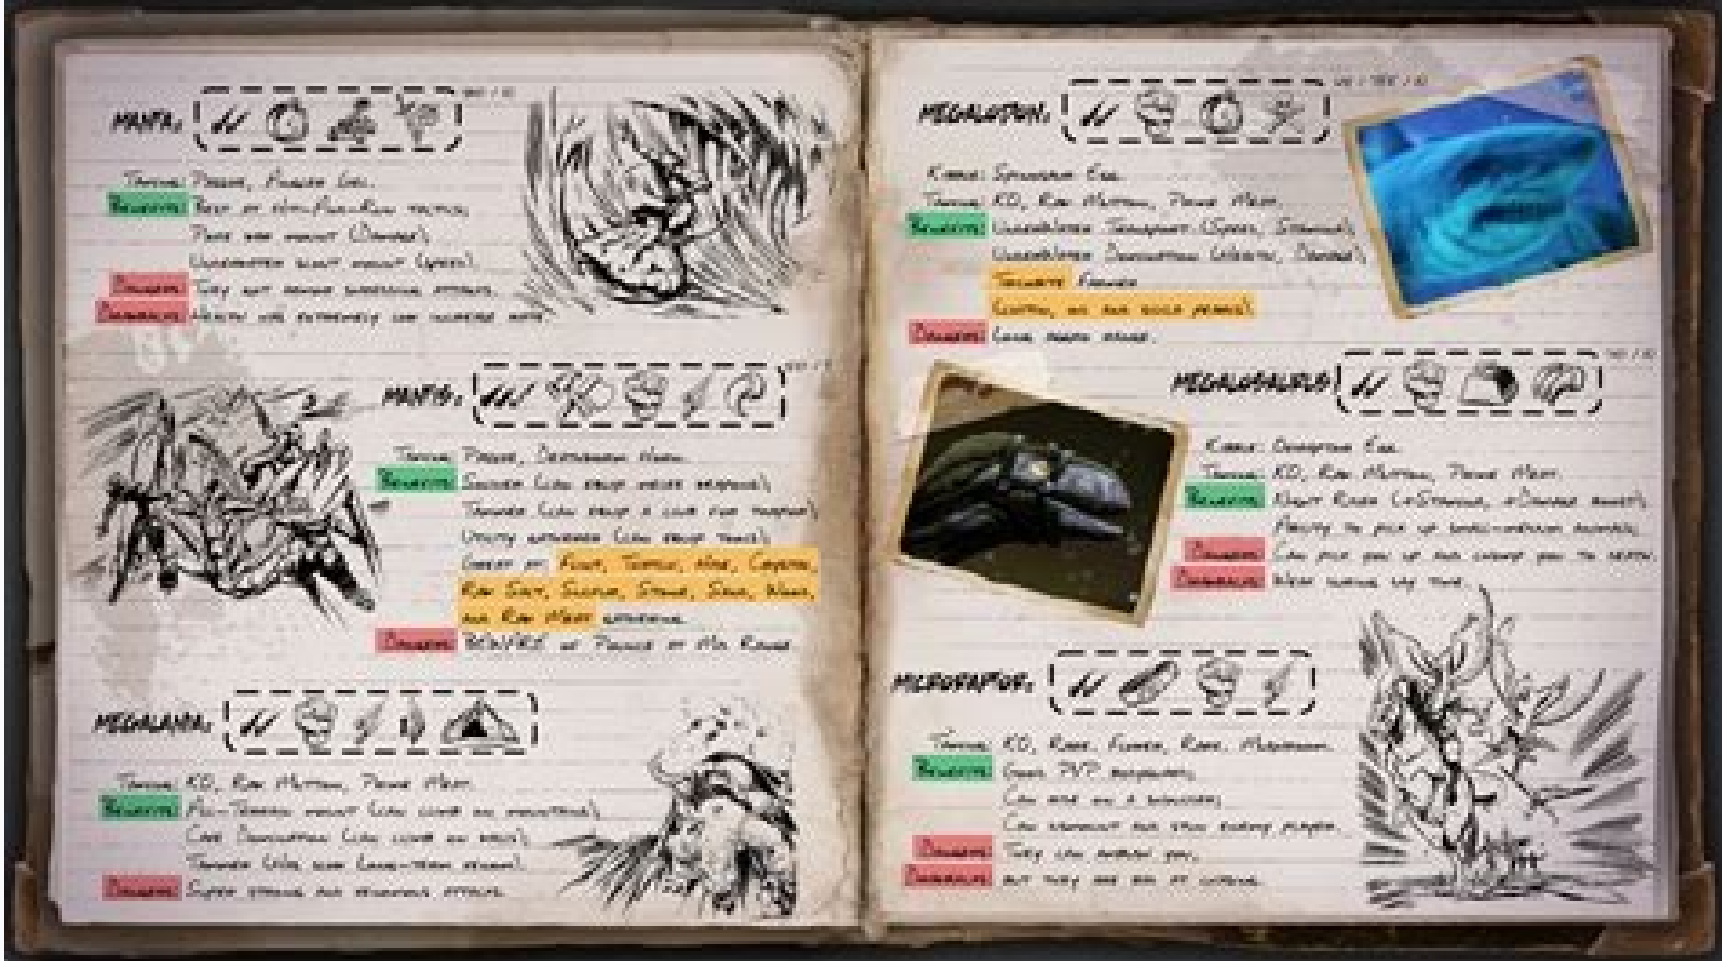 MANTA:
Taming: Passive, Angler Gel.
Benefits: Best at Hit-And-Run tactics,
Pure war mount (Damage),
Underwater scout mount (speed).
Dangers: They out damage
Drawbacks: Health has extremely low increase rate.
MANTIS:
Taming: Passive, Deathworm Horn.
Benefits: Soldier (can equip melee weapons),
Tamer (can equip a club for torpor),
Utility gatherer (can equip tools),
Great at: Flint, Thatch, Hide, Crystal,
Raw Salt, Sulfur, Stone, Sand, Wood,
and Raw Meat gathering.
Dangers: BEWARE of Pounce at Mid Range.
MEGALANIA:
Taming: KO, Raw Mutton, Prime Meat.
Benefits: All-Terrain mount (can climb on mountains),
Cave Domination (can climb on walls),
Tamer (long-term venom).
Dangers: Super strong and venomous attacks.
MEGALODON:
Kibble: Spinosaur Egg.
Taming: KO, Raw Mutton, Prime Meat.
Benefits: Underwater Transport (Speed, Stamina),
Underwater Domination (Health, Damage),
Farmer
oil and silica pearls).
Dangers: Long aggro range.
MEGALOSAURUS:
Kibble: Oviraptor Egg.
Taming: KO, Raw Mutton, Prime Meat.
Benefits: Night Rider (+Stamina, +Damage boost),
Ability to pick up small-medium animals,
Dangers: Can pick you up and chomp you to death.
Drawbacks: Weak during day time.
MICRORAPTOR:
Taming: KO, Rare Flower, Rare Mushroom.
Benefits: Good PVP bodyguard,
Can ride on a shoulder,
Can dismount and stun enemy player.
Dangers: They can ambush you,
Drawbacks: but they are